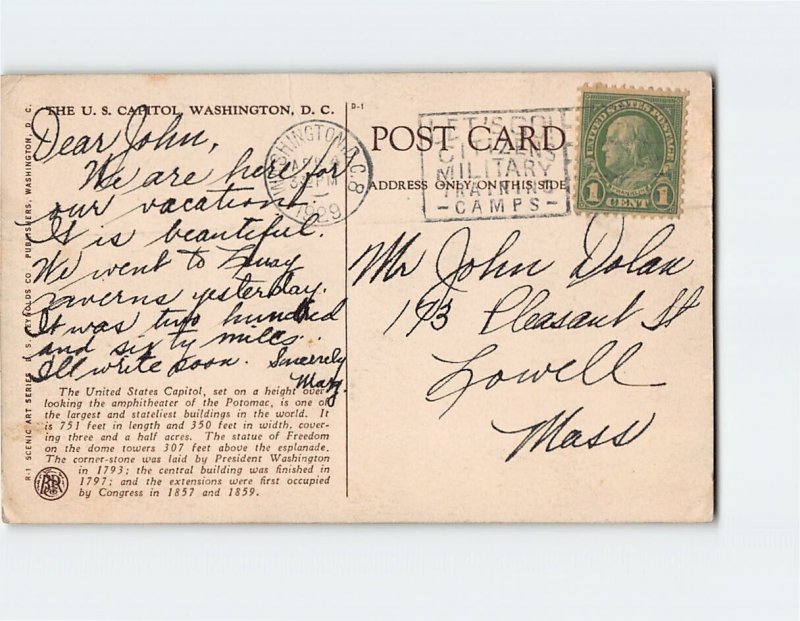 THE U. S. CAPITOL, WASHINGTON, D. C.
Dear John,
We are here for
our vacation.
It is beautiful.
We went to Luray
caverns yesterday.
It was two hundred
and sixty miles.
I'll write soon. Sincerely
Mary.
The United States Capitol, set on a height over-
looking the amphitheater of the Potomac, is one of
the largest and stateliest buildings in the world. It
is 751 feet in length and 350 feet in width, cover-
ing three and a half acres. The statue of Freedom
on the dome towers 307 feet above the esplanade.
The corner-stone was laid by President Washington
in 1793; the central building was finished in
1797; and the extensions were first occupied
by Congress in 1857 and 1859.
R-1 SCENIC ART SERIES B. S. REYNOLDS CO. PUBLISHERS, WASHINGTON, D. C.
D-1
POST CARD
ADDRESS ONLY ON THIS SIDE
WASHINGTON, D.C. 8
APR
PM
1929
LET'S GO!
CITIZENS
MILITARY
TRAINING
-CAMPS-
UNITED STATES POSTAGE
FRANKLIN
1 CENT 1
Mr John Dolan
193 Pleasant St
Lowell
Mass